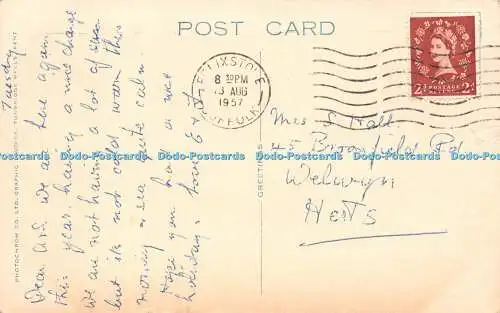 POST CARD
FELIXSTOWE
8 PM
13 AUG
1957
SUFFOLK
2½D POSTAGE REVENUE 2½D
Tuesday
Dear A & S. We are here again
this year having a nice change
we are not having a lot of sun
but its not cold, warm this
morning & sea quite calm.
Hope you had a nice
holiday. Love E &
Mrs S Hall
45 Broomfield Rd
Welwyn
Herts
GREETINGS
PHOTOCHROM CO. LTD., GRAPHIC STUDIOS, TUNBRIDGE WELLS, KENT
Dodo-Postcards.com Dodo-Postcards.com Dodo-Postcards.com Dodo-Postcards.com Dodo-Postcards.com